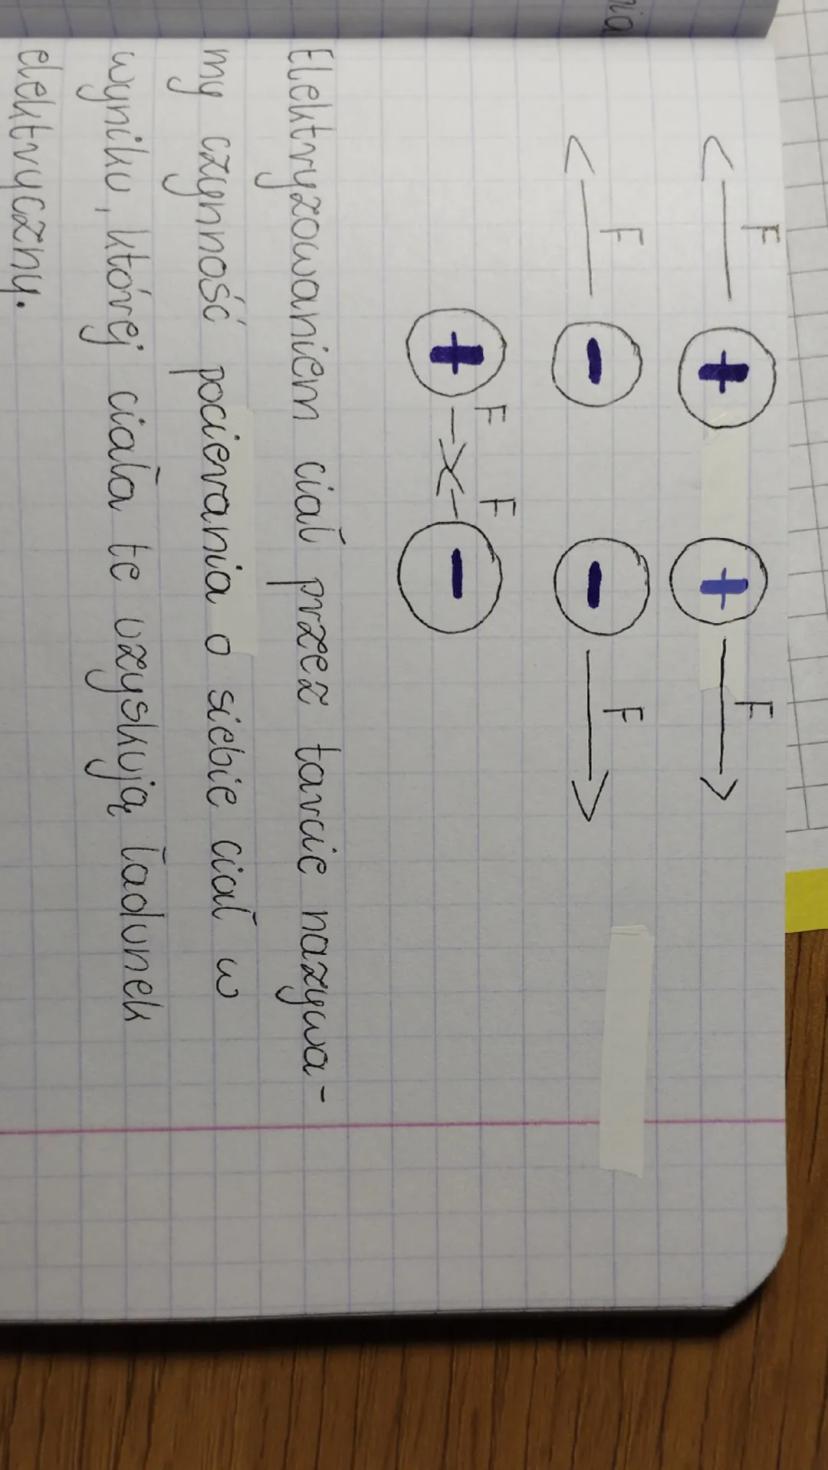 F F
+ +
F F
- -
F F
+ -
Elektryzowaniem ciał przez tarcie nazywa-
my czynność pocierania o siebie ciał w
wyniku, której ciała te uzyskują ładunek
elektryczny.